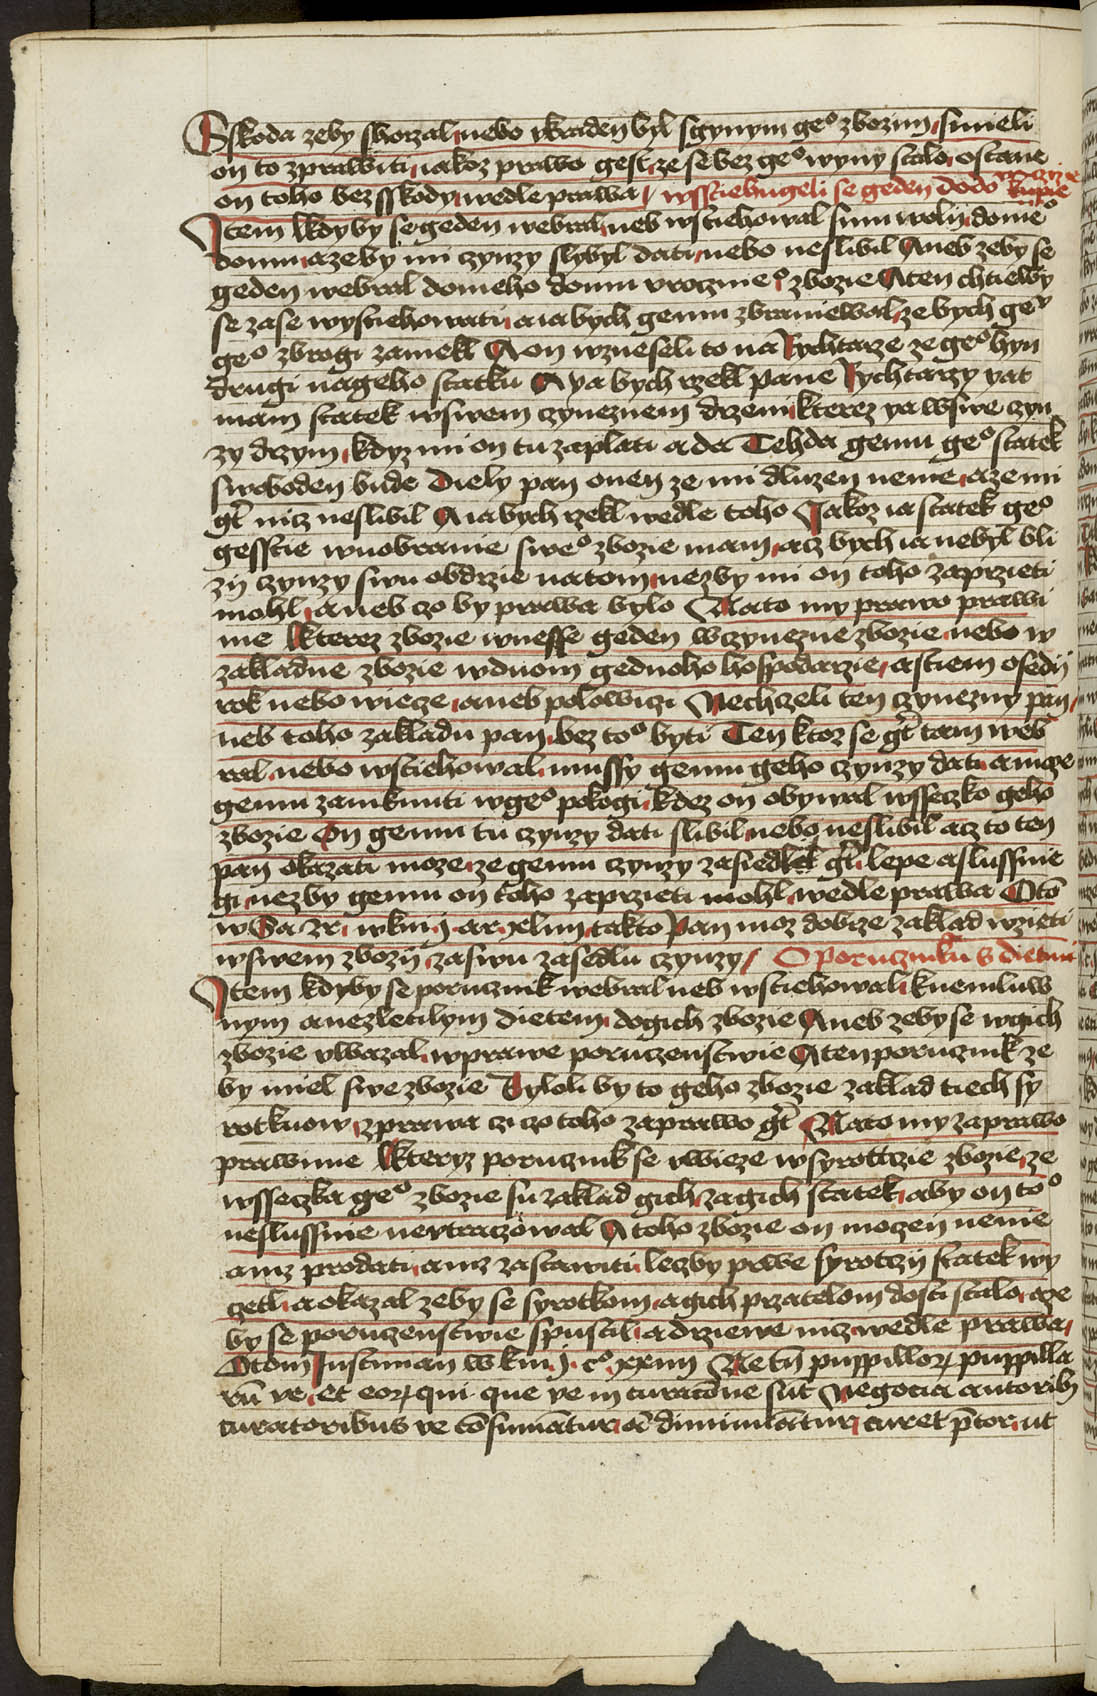 Sskoda zeby shorzal nebo vkraden byl sgynym geº zbozim smieli
on to zprawiti iakoz prawo gest ze se bez geº wyny stalo ostane
on toho bez sskody wedle prawa wsstiehugeli se geden do do
kupie
Item kdyby se geden webral neb wstiehowal smu woly do meº
domu a zeby mi czynzy slybyl dati nebo neslibil Aneb zeby se
geden webral do meho domu vroczneº zbozie A ten chtiewy
se zase wystiehowati a ia bych gemu zbraniewal ze bych geº
geº zbrogi zamekl A on wznesseli to na Rychtarze ze geº hyn
drugi na geho statku A ya bych rzekl pane Rychtarzy yat
mam statek wswem czyneznem drzeni kterez ya wswe czyn
zy drzym kdyz mi on tu zaplati a da Tehda gemu geº statek
swoboden bude Diely pan onen ze mi dluzen nenie a ze mi
gt nicz neslibil A ia bych rzekl wedle toho Jakoz ia statek geº
gesstie wuobranie sweº zbozie mam acz bych ia nebyl bli
zij czynzy swu obdrzie na tom nezby mi on toho zaprzieti
mohl aneb czo by prawa bylo Na to my prawo prawi
me kterez zbozie wnesse geden wczynezne zbozie nebo w
zakladne zbozie wduom gednoho hospodarzie a stiem osedij
rok nebo wiecze aneb polowiczi Nechczeli ten czynezny pan
neb toho zakladu pan bez toº byti Ten ktoz se gt tam web
ral nebo wstiehowal mussy gemu geho czynzy dati a muze
gemu zamknuti w geº pokogi kdez on obywal wsseczko geho
zbozie On gemu tu czynzy dati slibil nebo neslibil acz to ten
pan okazati moze ze gemu czynzy zasiedlek gt lepe a slussnie
gi nezby gemu on toho zaprzieti mohl wedle prawa Otom
w Sa zr wkni j ar xliiij takto Pan moz dobrze zaklad wzieti
wswem zbozij za swu zasedlu czynzy O poruczniku s dietmi
Item kdyby se porucznik webral neb wstiehowal knemluw
nym a nezletilym dietem do gich zbozie Aneb zeby se wgich
zbozie vwazal wprawe poruczenstwie A ten porucznik ze
by miel swe zbozie Byloli by to geho zbozie zaklad tiech sy
rotkuow zprawa czi czo toho za prawo gt Na to my za prawo
prawime Kteryz porucznik se vwieze wsyrottczie zbozie ze
wsseczka geº zbozie su zaklad gich za gich statek aby on toº
neslussnie nevtraczowal A toho zbozie on moczen nenie
aniz prodati aniz zastawiti leczby prwe syrotczij statek wy
czetl a okazal zeby se syrotkom a gich przatelom dosti stalo a ze
by se poruczenstwie spustil a drziewe nicz wedle prawa
Otom Justinian w kni j cº xxiiij Ne tn puppillor puppilla
rum ve et eor qui que ve in curacione sut Negocia a tutorib
curatoribus ve cosumatur aut diminuatur curet ptor ut